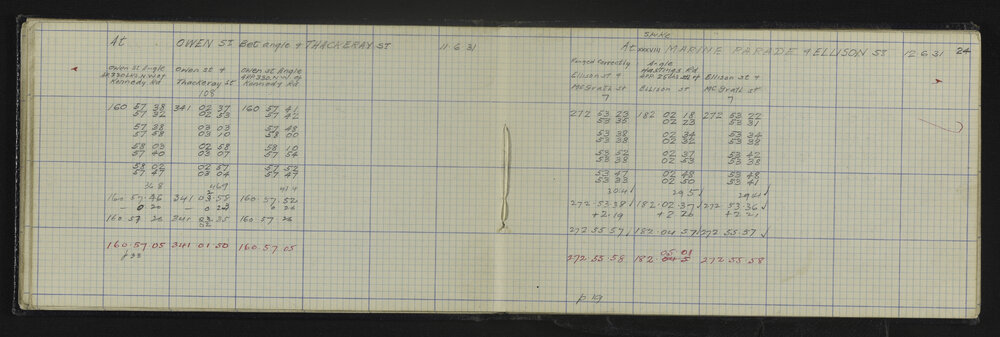 At OWEN ST Bet angle & THACKERAY ST 11.6.31
Owen St Angle Owen St & Owen St Angle
Kennedy Rd Thackeray St Kennedy Rd
108
160 57 38 341 02 37 160 57 41
57 32 02 53 57 42
57 38 03 03 57 48
57 58 03 10 58 00
58 03 02 58 58 10
57 40 03 07 57 54
58 02 02 57 57 59
57 47 03 04 57 47
368 469
160 57 46 341 03 58 160 57 52
160 57 26 341 160 57 26
160.57.05 341 01.50 160.57.05
Spike
At xxxviii MARINE PARADE & ELLISON ST 12.6.31 24
Fenced Correctly Angle
Ellison St & Hastings Rd Ellison St &
McGrath St Ellison St McGrath St
7 7
272 53 23 182 02 18 272 53 22
53 35 02 23 53 31
53 38 02 34 53 34
53 38 02 32 53 38
53 52 02 37 53 42
53 38 02 38 53 38
53 47 02 48 53 48
53 33 02 50 53 41
304 295 294
272.53.38 182.02.37 272 53.36
+2.19 +2 20 +2 21
272 55 57 182.04 57 272 55.57
05 01
272 55 58 182. 272 55 58
p 19